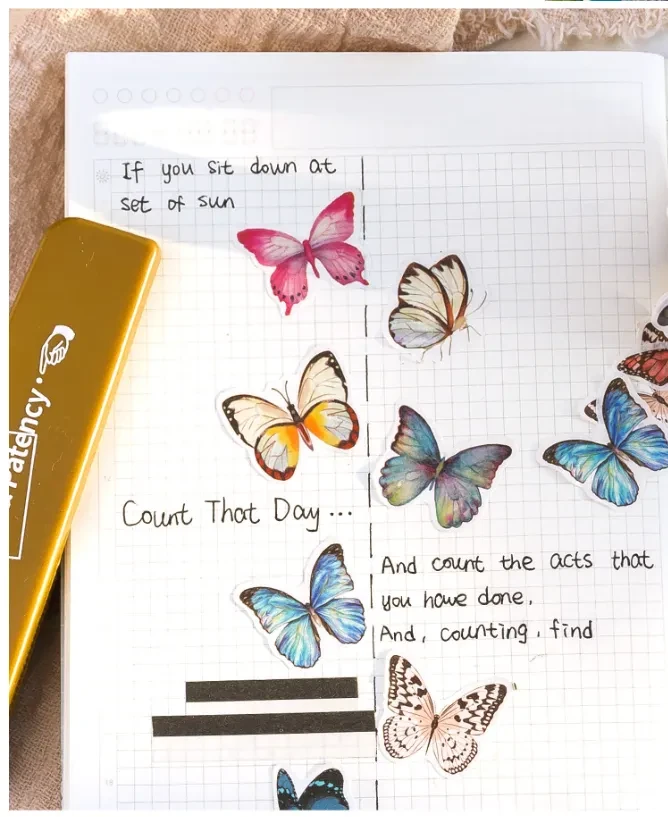 If you sit down at
set of sun
Count That Day ...
And count the acts that
you have done,
And, counting, find
Patency.
18